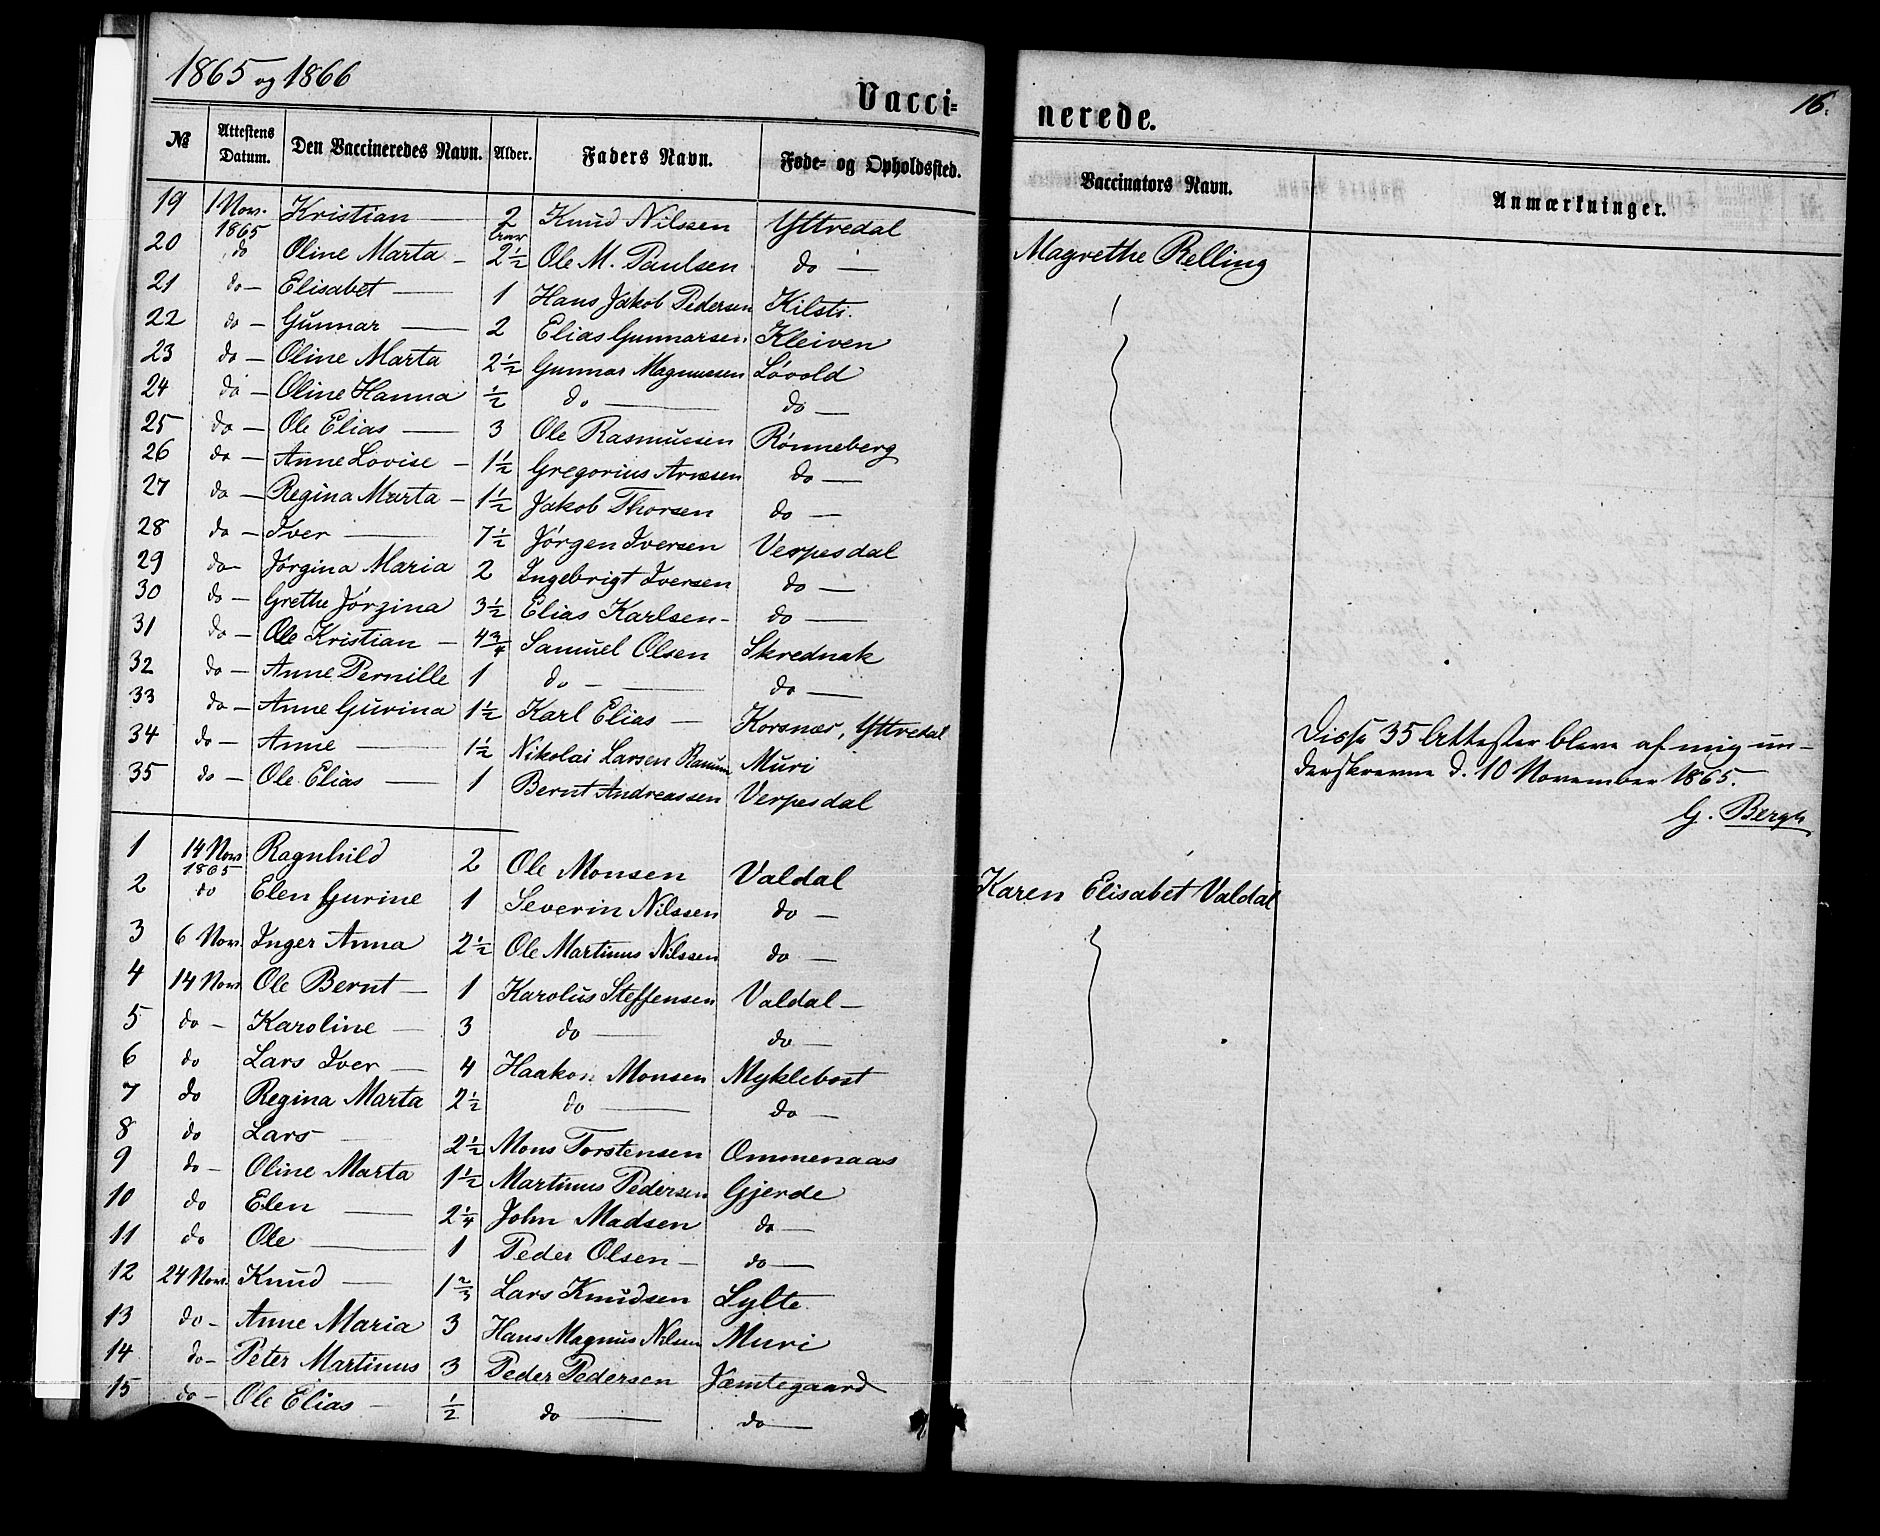 1865 og 1866
Vacci=
nerede.
16.
№ Attestens Datum. Den Vaccineredes Navn. Alder. Faders Navn. Føde= og Opholdssted. Vaccinators Navn. Anmærkninger.
19 1 Nov. 1865 Kristian — 2 Knud Nilssen Yttredal
20 do Oline Marta — 2½ Ole M. Paulsen do — Magrethe Relling
21 do — Elisabet — 1 Hans Jakob Pedersen Kilsti.
22 do — Gunnar — 2 Elias Gunnarsen Kleiven
23 do — Oline Marta 2½ Gunnar Magnussen Løvold
24 do — Oline Hanna ½ do — do —
25 do — Ole Elias — 3 Ole Rasmussen Rønneberg
26 do — Anne Lovise — 1½ Gregorius Arnesen do —
27 do — Regina Marta — 1½ Jakob Thorsen do —
28 do — Iver — 7½ Jørgen Iversen Verpesdal
29 do — Jørgina Maria 2 Ingebrigt Iversen do —
30 do — Grethe Jørgina 3½ Elias Karlsen — do —
31 do — Ole Kristian — 4¾ Samuel Olsen Skrednak
32 do — Anne Pernille 1 do — do —
33 do — Anne Gurina 1½ Karl Elias — Korsnær, Yttredal
34 do — Anne — 1½ Nikolai Larsen Muri
35 do — Ole Elias — 1 Bernt Andreassen Verpesdal
Disse 35 Attester bleve af mig un-
derskrevne d. 10 November 1865.
G. Bergh
1 14 Nov 1865 Ragnhild 2 Ole Monsen Valdal
2 do Elen Gurine 1 Severin Nilssen do — Karen Elisabet Valdal
3 6 Nov. Inger Anna 2½ Ole Martinus Nilssen do —
4 14 Nov. Ole Bernt — 1 Karolus Steffensen Valdal —
5 do — Karoline — 3 do — do —
6 do Lars Iver — 4 Haakon Monsen Myklebost
7 do Regina Marta 2½ do — do —
8 do Lars — 2½ Mons Torstensen Ommenaas
9 do — Oline Marta 1½ Martinus Pedersen Gjerde
10 do Elen — 2¼ John Madsen do —
11 do Ole — 1 Peder Olsen — do —
12 24 Nov. Knud — 1⅔ Lars Knudsen Sylte
13 do — Anne Maria 3 Hans Magnus Nilsen Muri
14 do — Peter Martinus 3 Peder Pedersen Jæmtegaard
15 do — Ole Elias — ½ do — do —